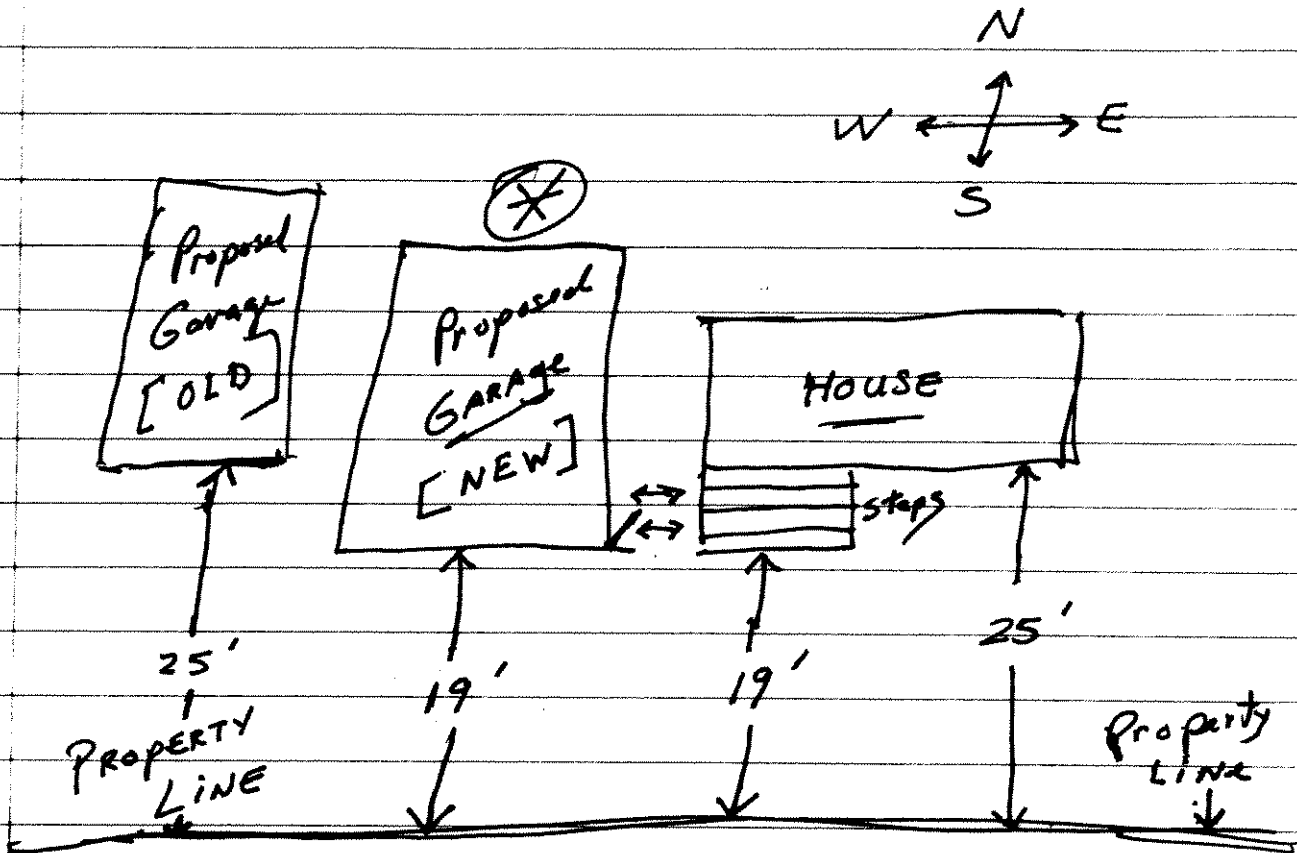 N
W E
S
Proposed
Garage
[OLD]
Proposed
GARAGE
[NEW]
HOUSE
steps
25'
19'
19'
25'
PROPERTY
LINE
Property
LINE